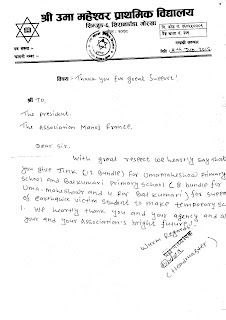 श्री उमा महेश्वर प्राथमिक विद्यालय
विषय:- Thank you for great Support!
To,
The president.
The Association Manoj France,
Dear Sir.
With great respect we heartly say that
you give Tink (12 Bundle) For Umamaheshwor primary
School and Balkumari Primary School (8 bundle for
Uma-maheshwor and 4 For Balkumari) for suppo
of earthquake victim student to make temporary sc
1. We heartly thank you and your agency and al
your and your Association's bright future!!
Warm Regards!
(Headmaster)